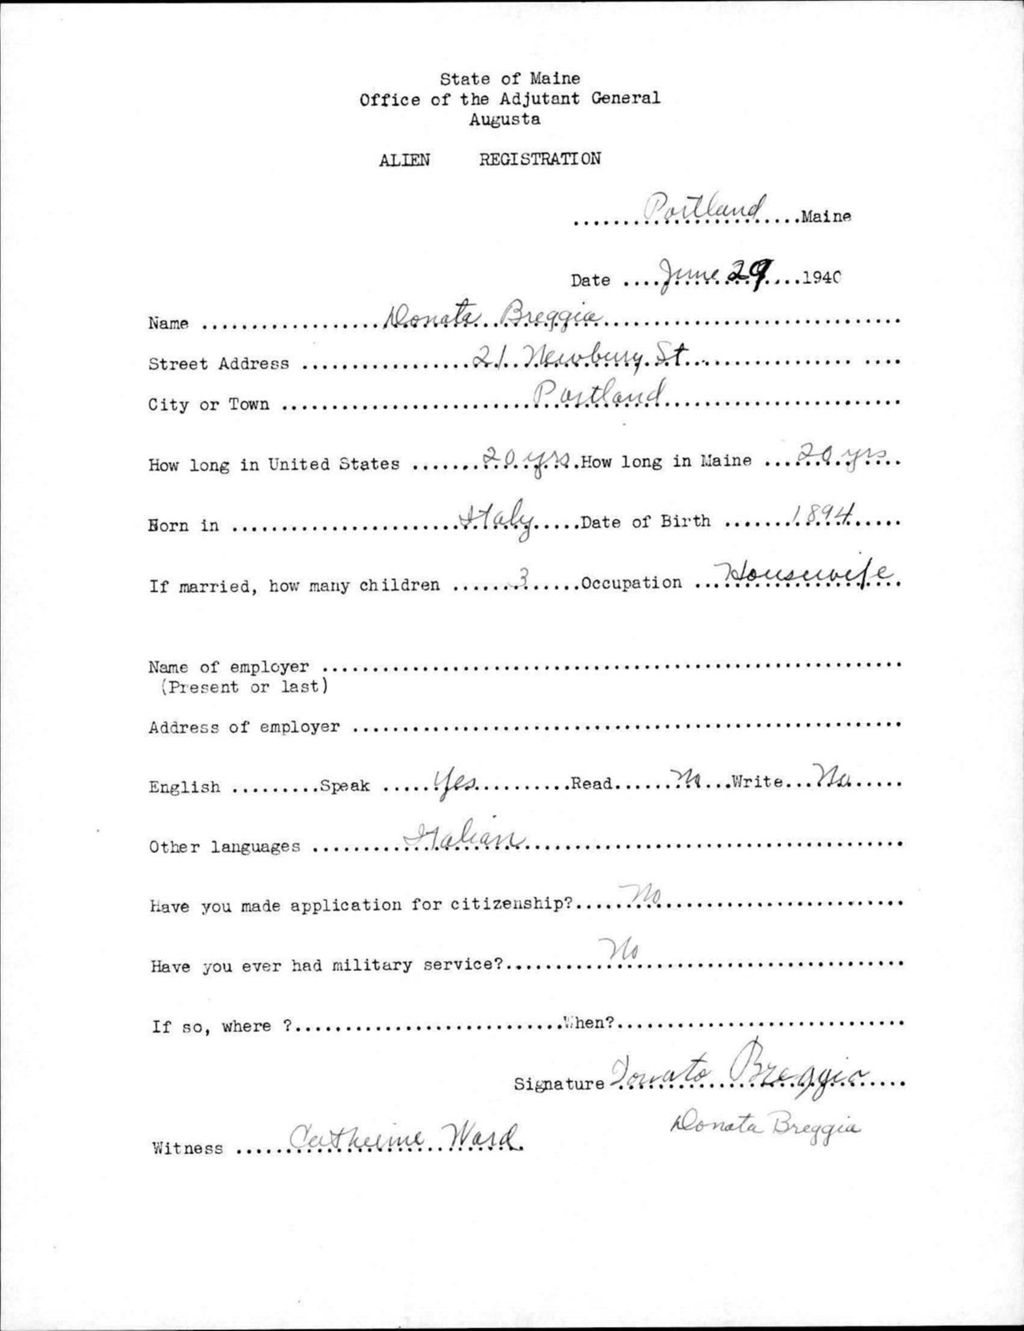 State of Maine
Office of the Adjutant General
Augusta
ALIEN REGISTRATION
.......Portland.....Maine
Date ....June 29....1940
Name ..................Donata Breggia..............................
Street Address .................21 Newbury St....................
City or Town .........................Portland........................
How long in United States .......20 yrs.How long in Maine ...20 yrs..
Born in .......................Italy.....Date of Birth .......1894.....
If married, how many children ......3......Occupation ...Housewife.
Name of employer ..........................................................
(Present or last)
Address of employer .......................................................
English .........Speak .....Yes..........Read......No...Write...No......
Other languages .........Italian......................................
Have you made application for citizenship?.....No........................
Have you ever had military service?..........No...........................
If so, where ?...........................When?.............................
Signature Donato Breggia....
Donata Breggia
Witness .....Catherine Ward.